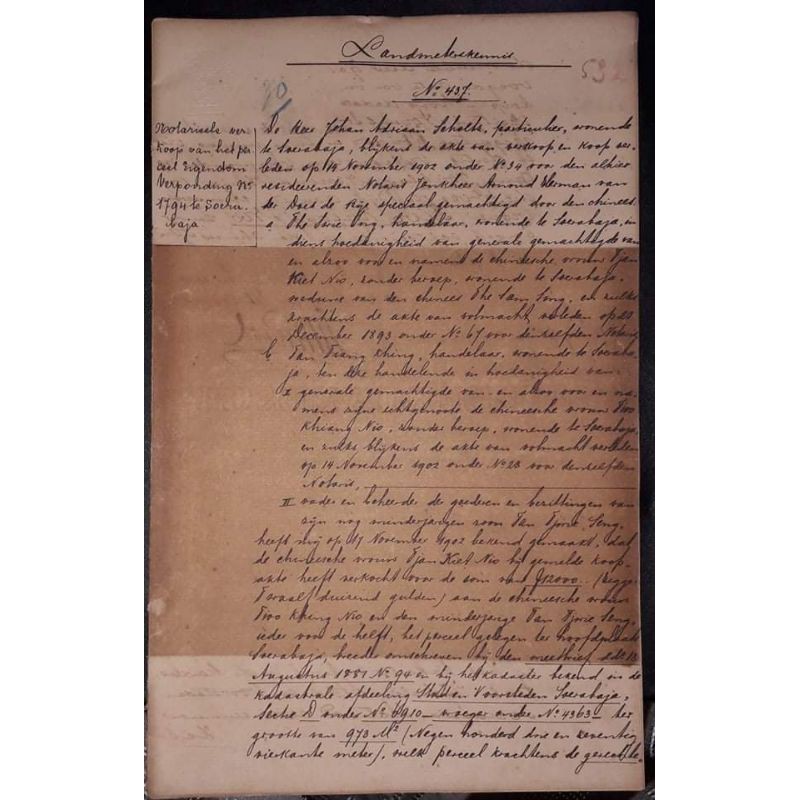 Landmeterskennis
No 437.
Notarieele ver-
koop van het per-
ceel Eigendom
Verponding No
1794 te Soera-
baja
De Heer Johan Adriaan Scholte, particulier, wonende
te Soerabaja, blijkens de akte van verkoop en koop ver-
leden op 14 November 1902 onder No 34 voor den alhier
resideerenden Notaris Jonkheer Arnoud Herman van
der Does de Bije speciaal gemachtigd door den chinees
a The Sorie Ong, handelaar, wonende te Soerabaja, in
diens hoedanigheid van generale gemachtigde van
en alzoo voor en namens de chineesche vrouw Tjan
Kiet Nio, zonder beroep, wonende te Soerabaja,
weduwe van den chinees The Sam Song, en zulks
krachtens de akte van volmacht verleden op
December 1893 onder No 67 voor denzelfden Notaris
b Tan Tiang Khing, handelaar, wonende te Soeraba-
ja, ten deze handelende in hoedanigheid van:
I generale gemachtigde van en alzoo voor en na-
mens zijne echtgenoote de chineesche vrouw Two
Khiang Nio, zonder beroep, wonende te Soerabaja,
en zulks blijkens de akte van volmacht verleden
op 14 November 1902 onder No 28 voor denzelfden
Notaris,
II vader en beheerder der goederen en bezittingen van
zijn nog minderjarigen zoon Tan Tjorie Seng,
heeft mij op 17 November 1902 bekend gemaakt, dat
de chineesche vrouw Tjan Kiet Nio bij gemelde koop-
akte heeft verkocht voor de som van f 12000.- (zegge
Twaalf duizend gulden) aan de chineesche vrouw
Two Khing Nio en den minderjarige Tan Tjorie Seng,
ieder voor de helft, het perceel gelegen ter hoofdplaats
Soerabaja, breeder omschreven bij den meetbrief ddo 12
Augustus 1881 No 94 en bij het kadaster bekend in de
kadastrale afdeeling Stad en Voorsteden Soerabaja,
Sectie D onder No 6910 - vroeger onder No 4363 - ter
grootte van 973 M2 (Negen honderd drie en zeventig
vierkante meter), welk perceel krachtens de